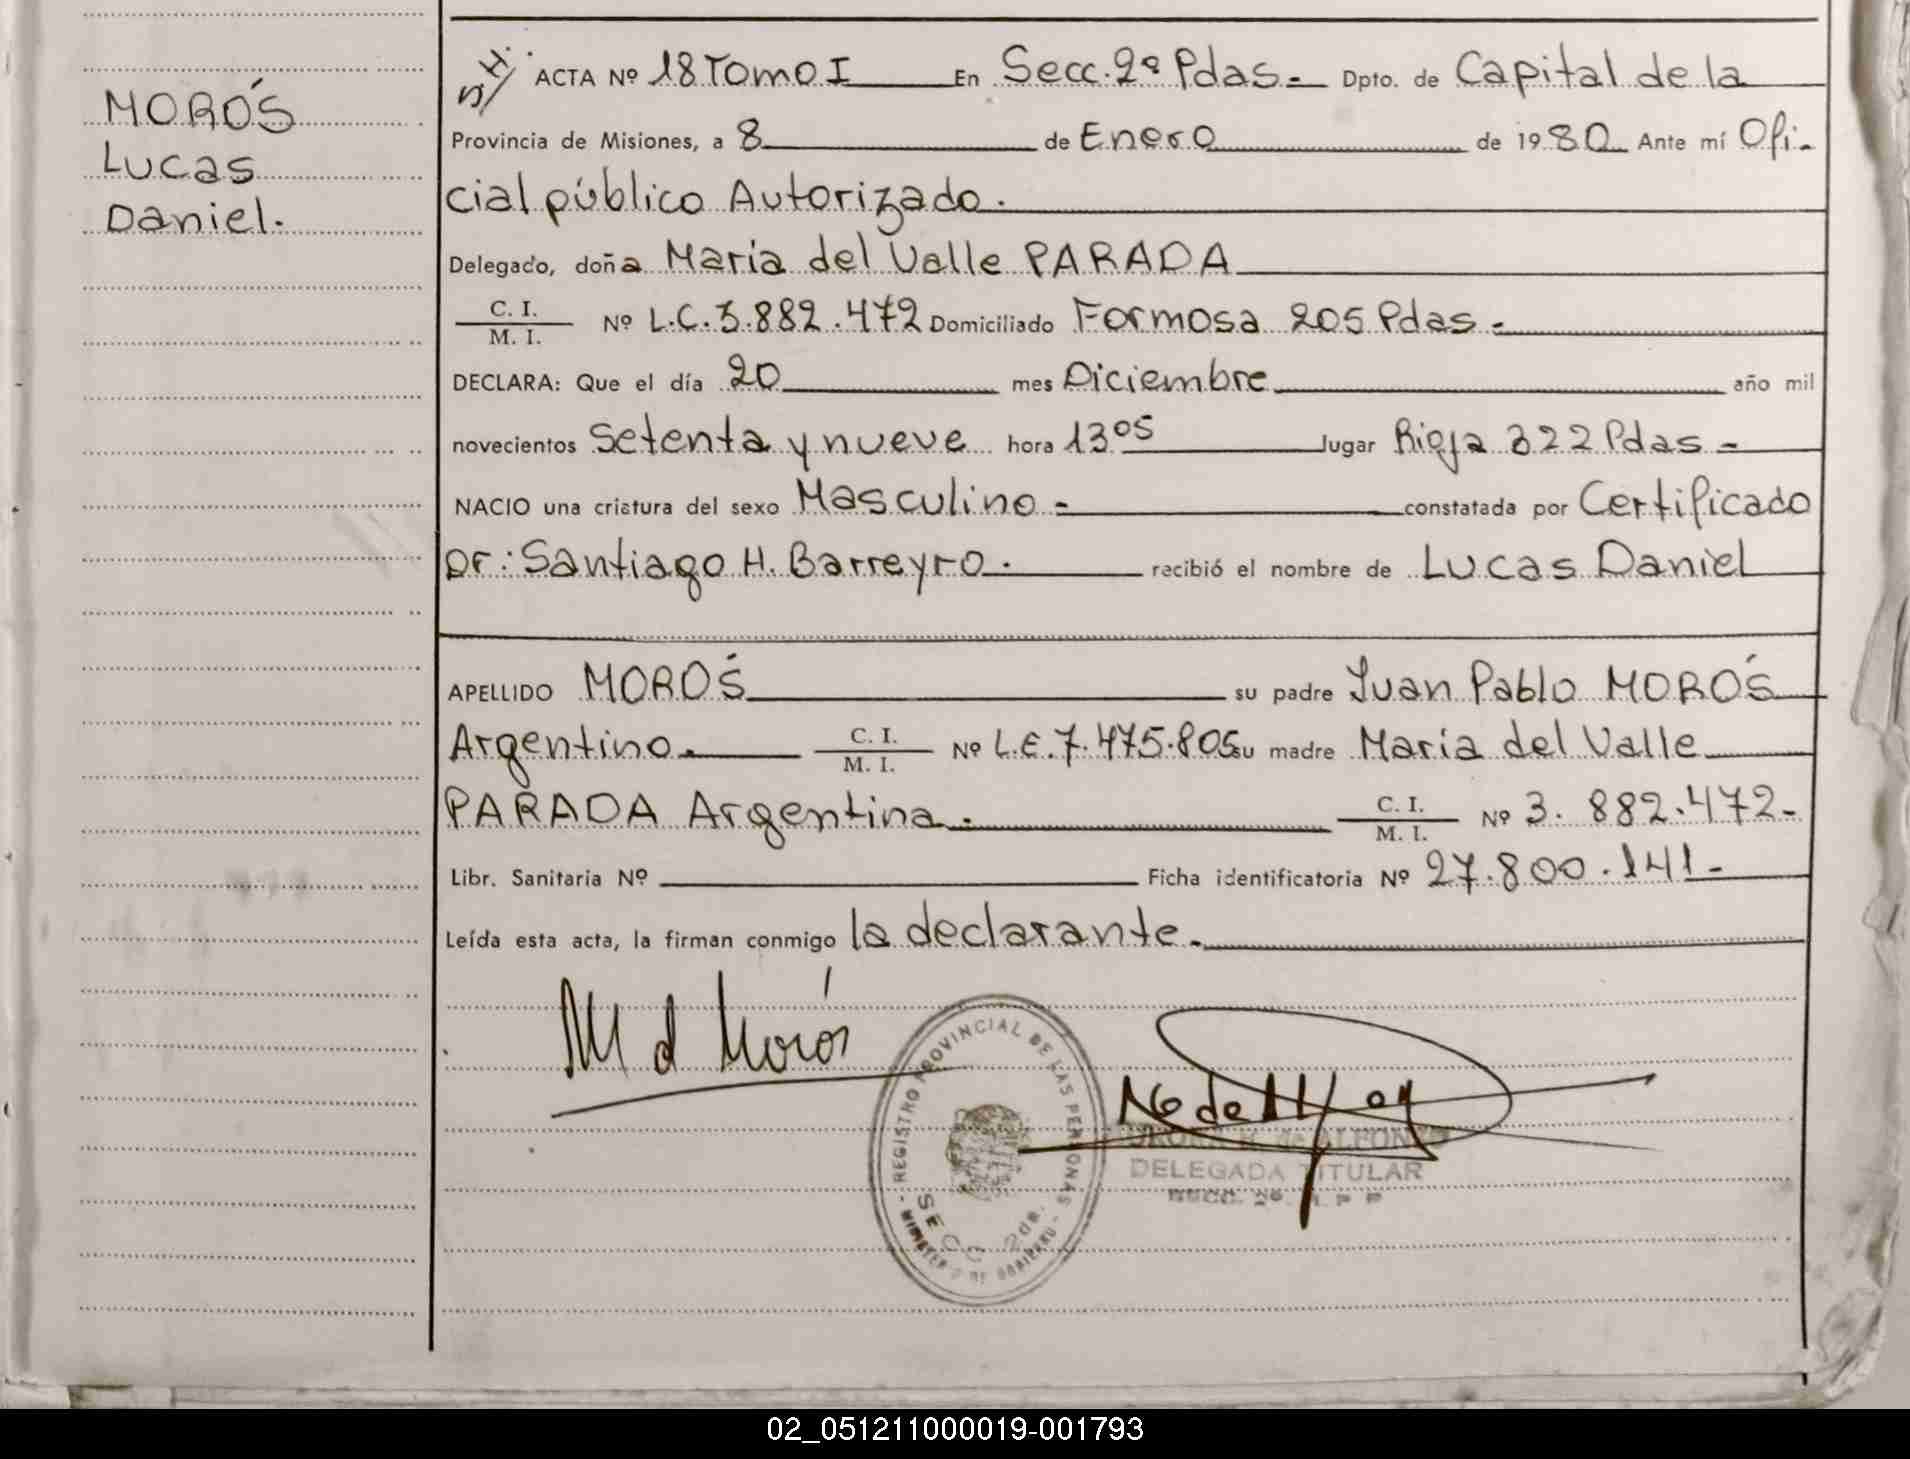 MORÓS
Lucas
Daniel.
ACTA Nº 18 Tomo I En Secc. 2º Pdas.- Dpto. de Capital de la
Provincia de Misiones, a 8 de Enero de 1980 Ante mí Ofi-
cial público Autorizado.
Delegado, doña María del Valle PARADA
C. I.
M. I.
Nº L.C. 3.882.472 Domiciliado Formosa 205 Pdas.-
DECLARA: Que el día 20 mes Diciembre año mil
novecientos setenta y nueve hora 13 05 lugar Rioja 322 Pdas.-
NACIO una criatura del sexo Masculino.- constatada por Certificado
Dr: Santiago H. Barreyro. recibió el nombre de Lucas Daniel
APELLIDO MORÓS su padre Juan Pablo MORÓS
Argentino. C. I.
M. I.
Nº L.E. 7.475.805 su madre María del Valle
PARADA Argentina.- C. I.
M. I.
Nº 3.882.472-
Libr. Sanitaria Nº Ficha identificatoria Nº 27.800.141-
Leída esta acta, la firman conmigo la declarante.-
M d Morós
REGISTRO PROVINCIAL DE LAS PERSONAS
MINISTERIO DE GOBIERNO
SECC 2DA.
de ALFONSO
DELEGADA TITULAR
02_051211000019-001793